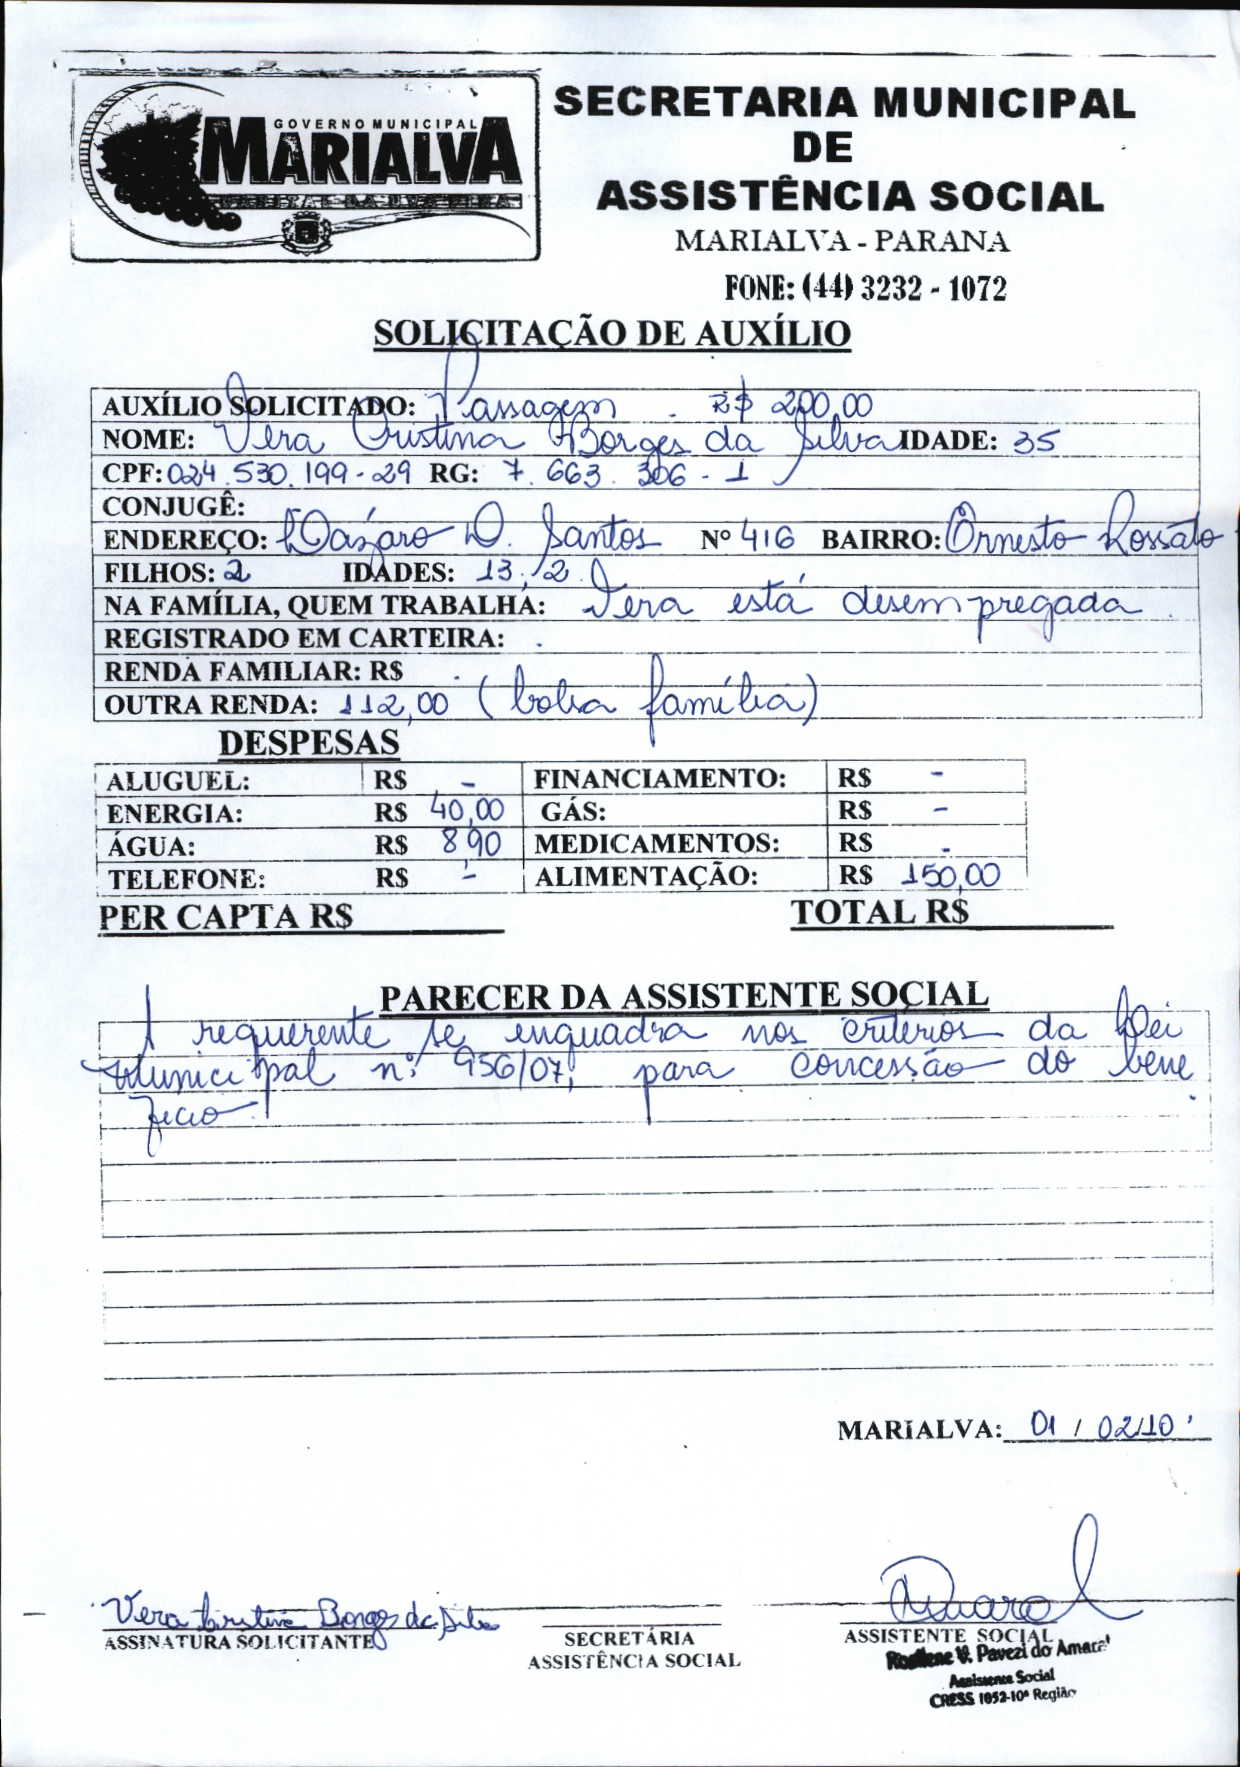 GOVERNO MUNICIPAL
MARIALVA
CAPITAL DA UVA FINA
SECRETARIA MUNICIPAL
DE
ASSISTÊNCIA SOCIAL
MARIALVA - PARANA
FONE: (44) 3232 - 1072
SOLICITAÇÃO DE AUXÍLIO
AUXÍLIO SOLICITADO: Passagem . R$ 200,00
NOME: Vera Cristina Borges da Silva IDADE: 35
CPF: 024.530.199-29 RG: 7.663.306-1
CONJUGÊ:
ENDEREÇO: Lázaro D. Santos Nº 416 BAIRRO: Ornesto Lossato
FILHOS: 2 IDADES: 13, 2.
NA FAMÍLIA, QUEM TRABALHA: Vera está desempregada.
REGISTRADO EM CARTEIRA: .
RENDA FAMILIAR: R$ .
OUTRA RENDA: 112,00 (bolsa família)
DESPESAS
ALUGUEL: R$ - FINANCIAMENTO: R$ -
ENERGIA: R$ 40,00 GÁS: R$ -
ÁGUA: R$ 8,90 MEDICAMENTOS: R$ -
TELEFONE: R$ - ALIMENTAÇÃO: R$ 150,00
PER CAPTA R$ TOTAL R$
PARECER DA ASSISTENTE SOCIAL
A requerente se enquadra nos critérios da Lei
Municipal nº 956/07, para concessão do bene
fício.
MARIALVA: 01 / 02/10
Vera Cristina Borges da Silva
ASSINATURA SOLICITANTE
SECRETÁRIA
ASSISTÊNCIA SOCIAL
ASSISTENTE SOCIAL
Rosilene V. Pavezi do Amaral
Assistente Social
CRESS 1052-10ª Região